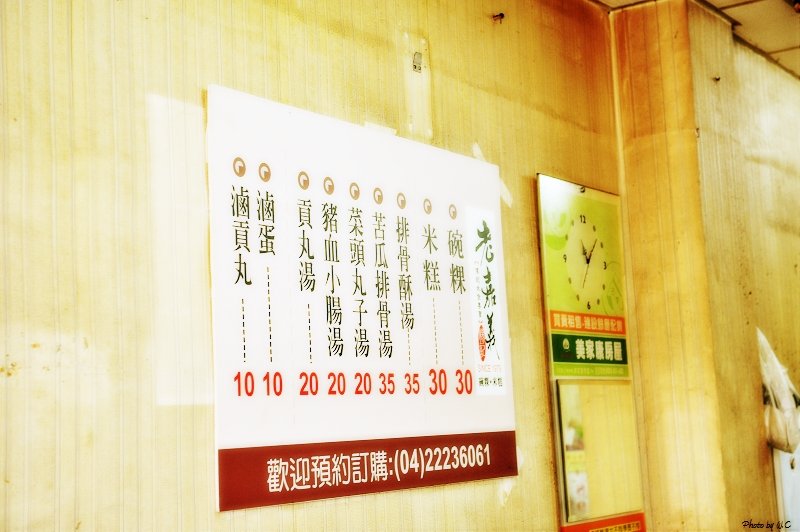 老嘉義
SINCE 1975
碗粿 30
米糕 30
排骨酥湯 35
苦瓜排骨湯 35
菜頭丸子湯 20
豬血小腸湯 20
貢丸湯 20
滷蛋 10
滷貢丸 10
歡迎預約訂購:(04)22236061
12
3
6
9
美家康房屋
Photo by U.C